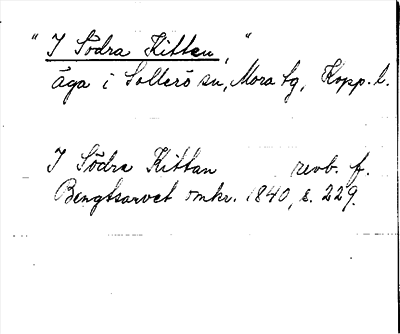 "I Södra Kittan,"
äga i Sollerö sn, Mora tg, Kopp. l.
I Södra Kittan revb. f.
Bengtsarvet omkr. 1840, s. 229.